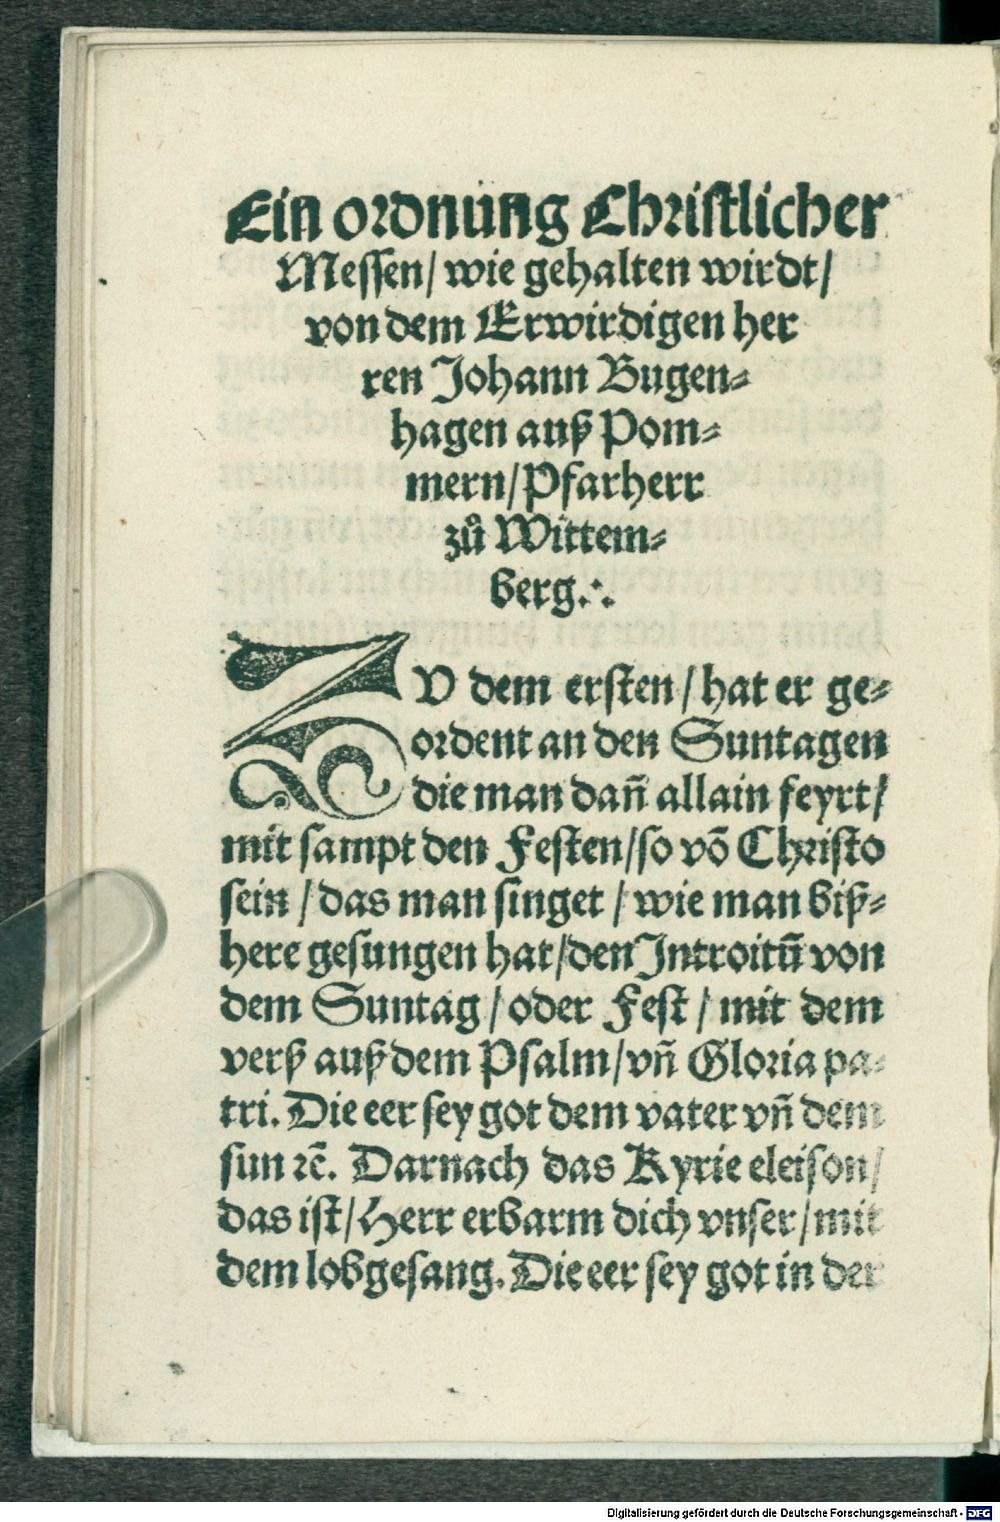 Ein ordnung Christlicher
Messen/ wie gehalten wirdt/
von dem Erwirdigen her
ren Johann Bugen⸗
hagen auß Pom⸗
mern/ Pfarherr
zů Wittem⸗
berg.∴
ZV dem ersten/ hat er ge⸗
ordent an den Suntagen
die man dañ allain feyrt/
mit sampt den Festen/ so võ Christo
sein/ das man singet/ wie man biß⸗
here gesungen hat/ den Introitũ von
dem Suntag/ oder Fest/ mit dem
verß auß dem Psalm/ vñ Gloria pa⸗
tri. Die eer sey got dem vater vñ dem
sun ꝛc̃. Darnach das Kyrie eleison/
das ist/ Herr erbarm dich vnser/ mit
dem lobgesang. Die eer sey got in der
Digitalisierung gefördert durch die Deutsche Forschungsgemeinschaft - DFG